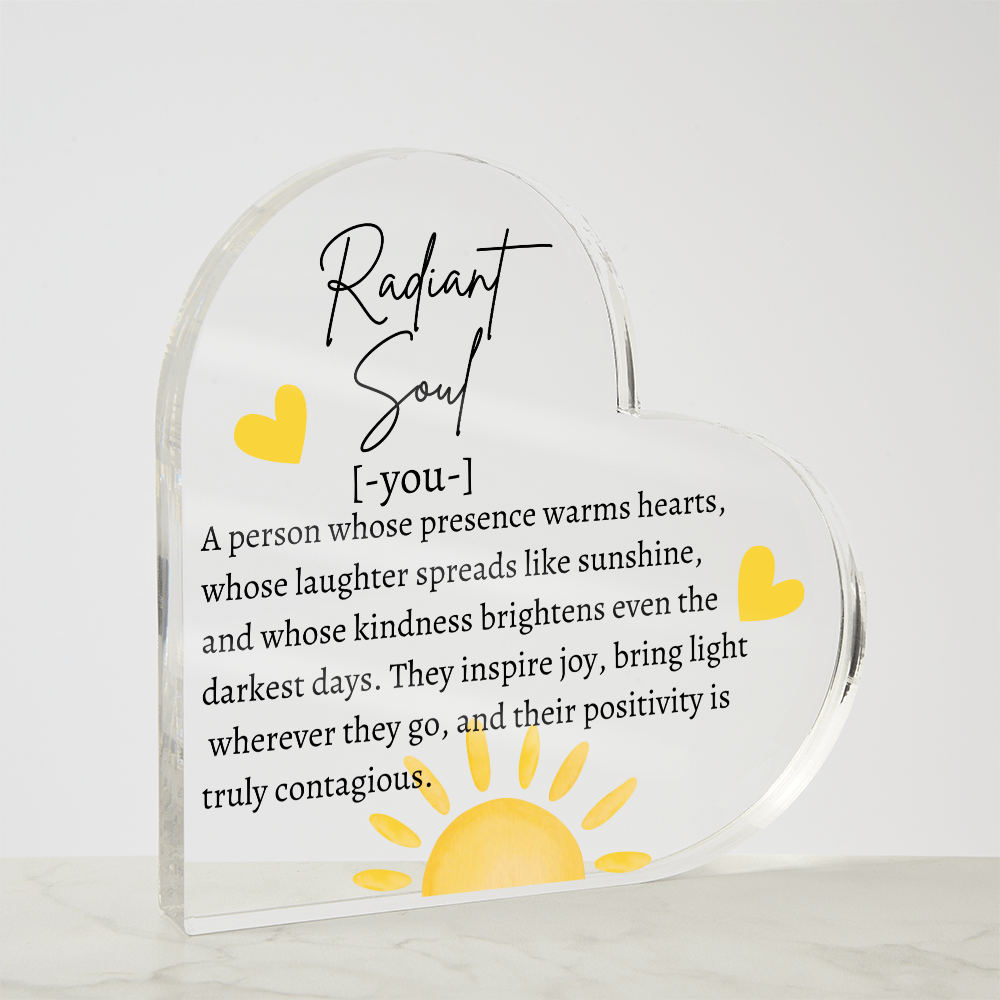 Radiant
Soul
[-you-]
A person whose presence warms hearts,
whose laughter spreads like sunshine,
and whose kindness brightens even the
darkest days. They inspire joy, bring light
wherever they go, and their positivity is
truly contagious.